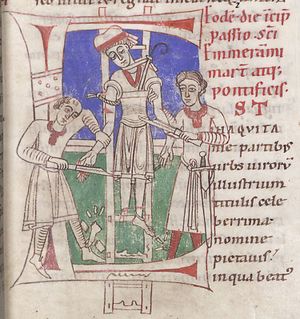 passio sci
emmerammi
mart atq
pontificis.
S T
HAQVITA
nie partibus
urbs uirorū
illustrium
titulis cele
berrima
nomine
pictauis
in qua beat